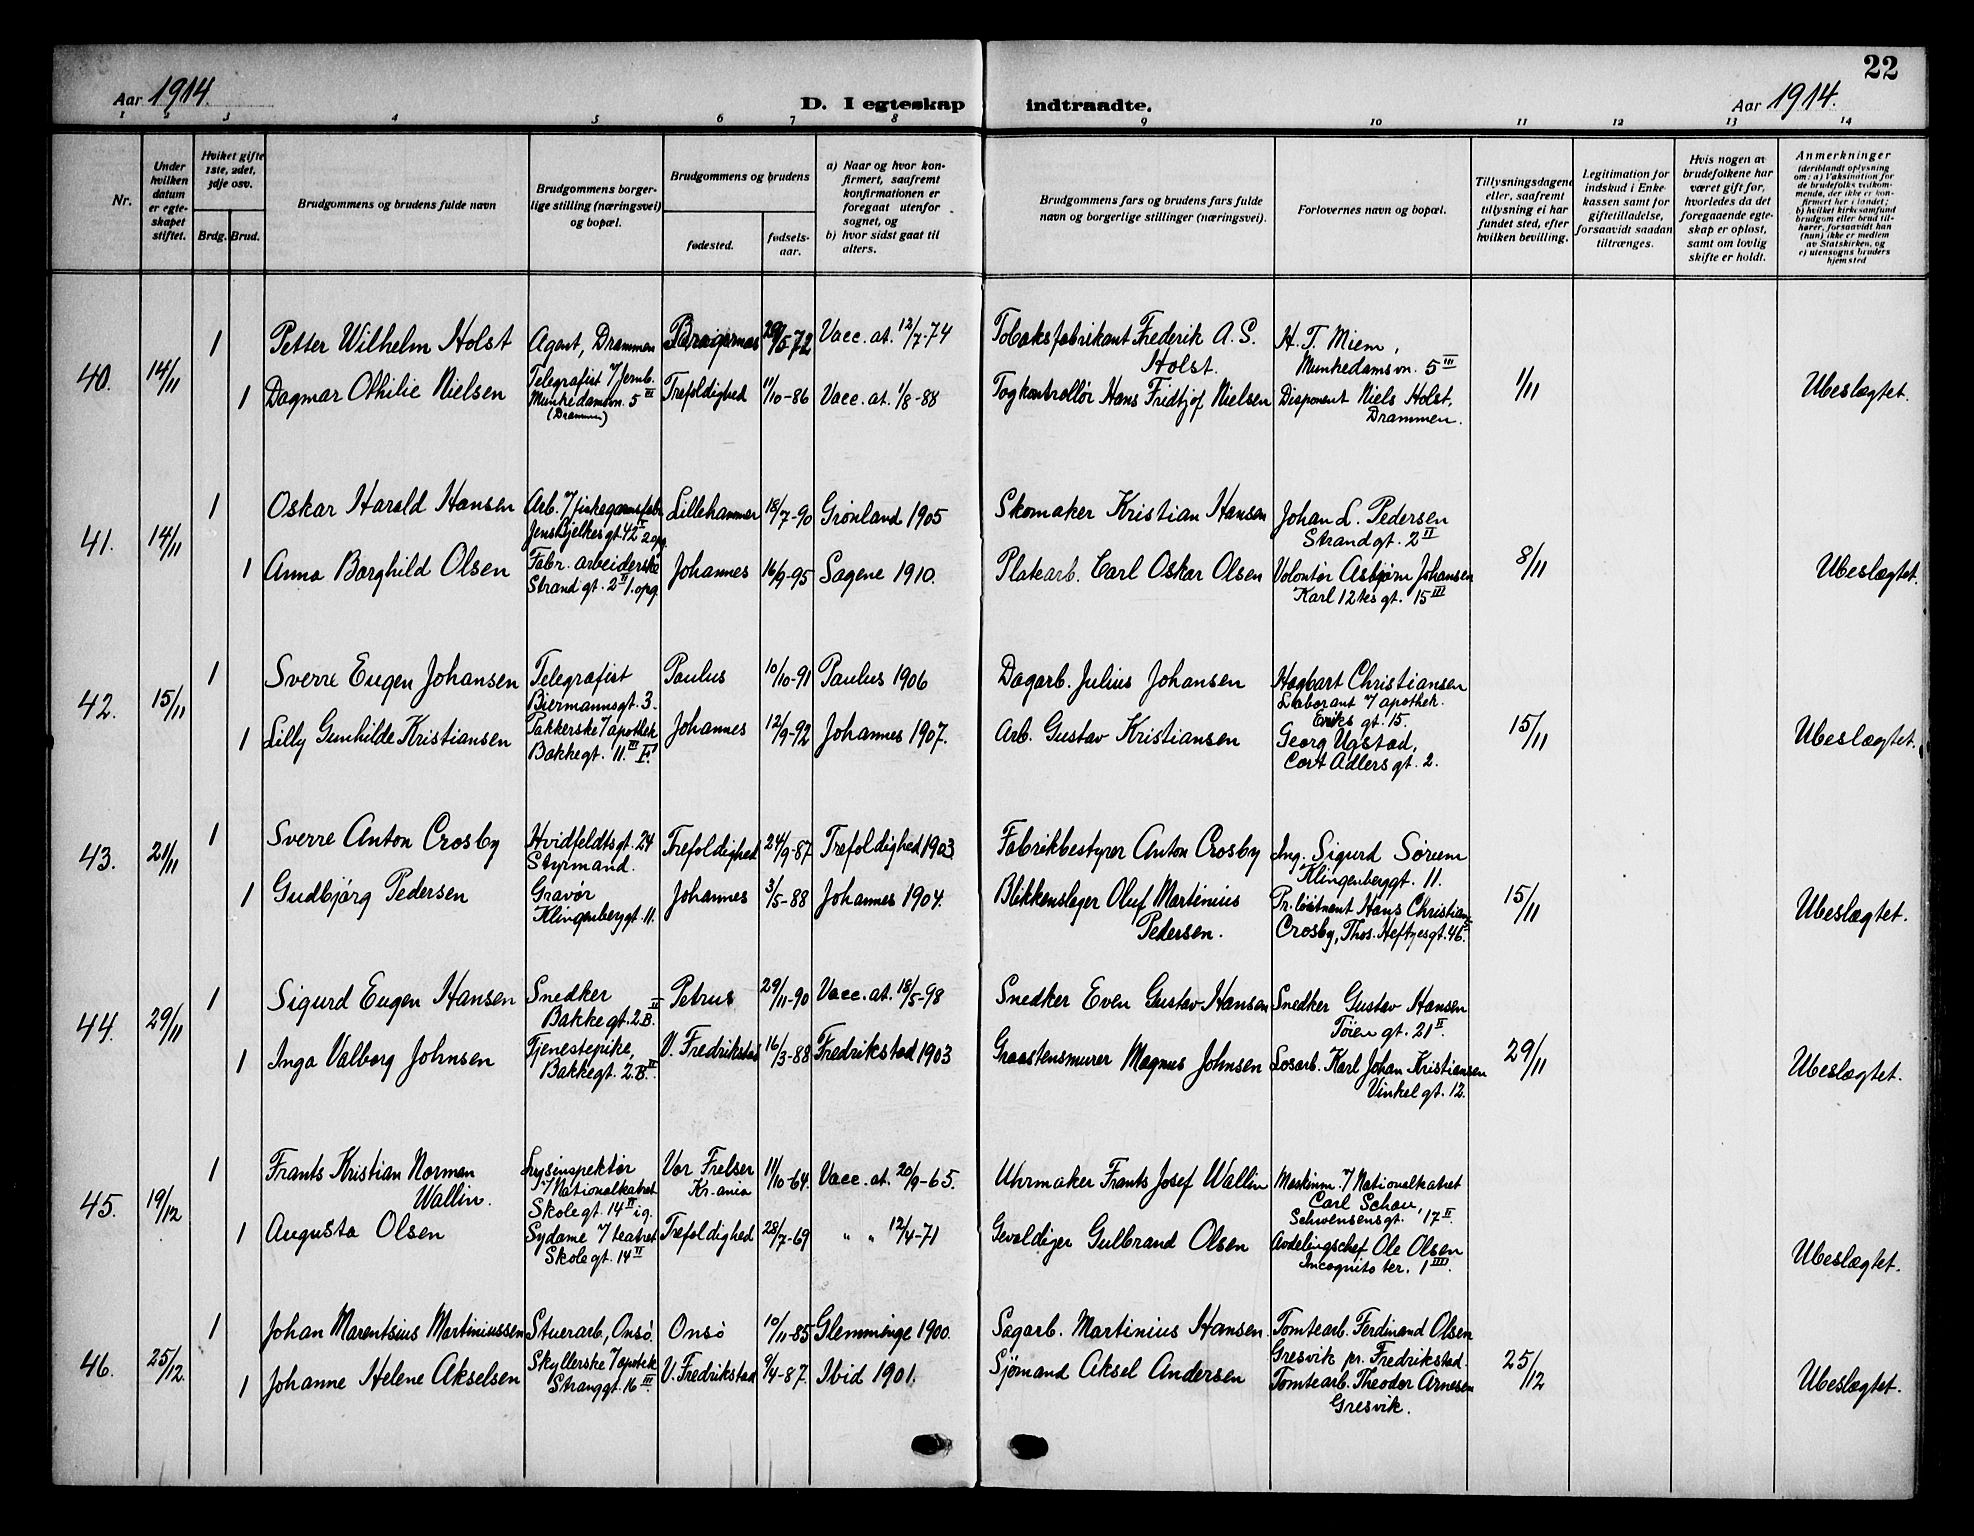 22
Aar 1914.
D. I egteskap indtraadte.
Aar 1914.
1 2 3 4 5 6 7 8 9 10 11 12 13 14
Nr.
Under hvilken datum er egteskapet stiftet.
Hvilket gifte 1ste, 2det, 3dje osv.
Brdg. Brud.
Brudgommens og brudens fulde navn
Brudgommens borgerlige stilling (næringsvei) og bopæl.
Brudgommens og brudens
fødested.
fødselsaar.
a) Naar og hvor konfirmert, saafremt konfirmationen er foregaat utenfor sognet, og
b) hvor sidst gaat til alters.
Brudgommens fars og brudens fars fulde navn og borgerlige stillinger (næringsvei).
Forlovernes navn og bopæl.
Tillysningsdagene eller, saafremt tillysning ei har fundet sted, efter hvilken bevilling.
Legitimation for indskud i Enkekassen samt for giftetilladelse, forsaavidt saadan tiltrænges.
Hvis nogen av brudefolkene har været gift før, hvorledes da det foregaaende egteskap er opløst, samt om lovlig skifte er holdt.
Anmerkninger (deriblandt oplysning om: a) Vaksination for de brudefolks vedkommende, der ikke er konfirmert her i landet; b) hvilket kirkesamfund brudgom eller brud tilhører, forsaavidt han (hun) ikke er medlem av Statskirken, og c) utensogns bruders hjemsted
40. 14/11
1 Petter Wilhelm Holst
Agent, Drammen
Bragernes 29/5 72 Vacc. at. 12/7-74
Tobaksfabrikant Frederik A. S. Holst.
H. T. Miem, Munkedamsvn. 5 III
1 Dagmar Othilie Nielsen
Telegrafist v/ Jernb. Munkedamsvn. 5 III (Drammen)
Trefoldighed 11/10-86 Vacc. at. 1/8-88
Togkontrollør Hans Fridtjof Nielsen
Disponent Niels Holst, Drammen.
1/11
Ubeslægtet.
41. 14/11
1 Oskar Harald Hansen
Arb. v/ fiskegarnsfabr. Jens Bjelkes gt. 42 IV 2 opg.
Lillehammer 18/7-90 Grønland 1905
Skomaker Kristian Hansen
Johan L. Pedersen Strandgt. 2 II
1 Anna Borghild Olsen
Fabr. arbeiderske Strandgt. 2 II 1. opg.
Johannes 16/9-95 Sagene 1910.
Platearb. Carl Oskar Olsen
Volontør Asbjørn Johansen Karl 12tes gt. 15 III
8/11
Ubeslægtet.
42. 15/11
1 Sverre Eugen Johansen
Telegrafist Biermannsgt. 3.
Paulus 10/10-91 Paulus 1906
Dagarb. Julius Johansen
Hagbart Christiansen Laborant v/ apothek. Eriks gt. 15.
1 Lilly Gunhilde Kristiansen
Pakkerske v/ apothek Bakkegt. 11. III F.
Johannes 12/9-92 Johannes 1907.
Arb. Gustav Kristiansen
Georg Ugstad, Cort Adlers gt. 2.
15/11
Ubeslægtet.
43. 21/11
1 Sverre Anton Crosby
Hvidfeldtsgt. 24 Styrmand.
Trefoldighed 24/9-87 Trefoldighed 1903
Fabrikbestyrer Anton Crosby
Ing. Sigurd Sørum Klingenberggt. 11.
1 Gudbjørg Pedersen
Gravør Klingenberggt. 11.
Johannes 3/5-88 Johannes 1904.
Blikkenslager Oluf Martinius Pedersen.
Pr. løitnant Hans Christian Crosby, Thos. Heftyesgt. 46.
15/11
Ubeslægtet.
44. 29/11
1 Sigurd Eugen Hansen
Snedker Bakkegt. 2 B. II
Petrus 29/11-90 Vacc. at. 18/5-98
Snedker Even Gustav Hansen
Snedker Gustav Hansen Töien gt. 21 II.
1 Inga Valborg Johnsen
Tjenestepike, Bakkegt. 2. B. II
V. Fredrikstad 16/3-88 Fredrikstad 1903
Graastensmurer Magnus Johnsen
Losarb. Karl Johan Kristiansen Vinkel gt. 12.
29/11
Ubeslægtet.
45. 19/12
1 Frants Kristian Norman Wallin.
Lysinspektør v/ Nationalteatret Skolegt. 14 II ig.
Vor Frelser Kr.ania 11/10-64. Vacc. at. 20/9-65.
Uhrmaker Frants Josef Wallin
Maskinm. v/ Nationalteatret Carl Schau, Schwensensgt. 17 II.
1 Augusta Olsen
Sydame v/ teatret Skolegt. 14 II
Trefoldighed 28/7-69 " " 12/4-71
Gevaldiger Gulbrand Olsen
Avdelingschef Ole Olsen Incognito ter. 1 III.
Ubeslægtet.
46. 25/12.
1 Johan Marentsius Martiniussen
Stuerarb, Onsö.
Onsö 10/11-85 Glemminge 1900.
Sagarb. Martinius Hansen.
Tomtearb. Ferdinand Olsen Gresvik pr. Fredrikstad.
1 Johanne Helene Akselsen
Skyllerske v/ apotek Stranggt. 16 III.
V. Fredrikstad 9/4-87. Ibid 1901.
Sjømand Aksel Andersen
Tomtearb. Theodor Arnesen Gresvik.
25/12
Ubeslægtet.